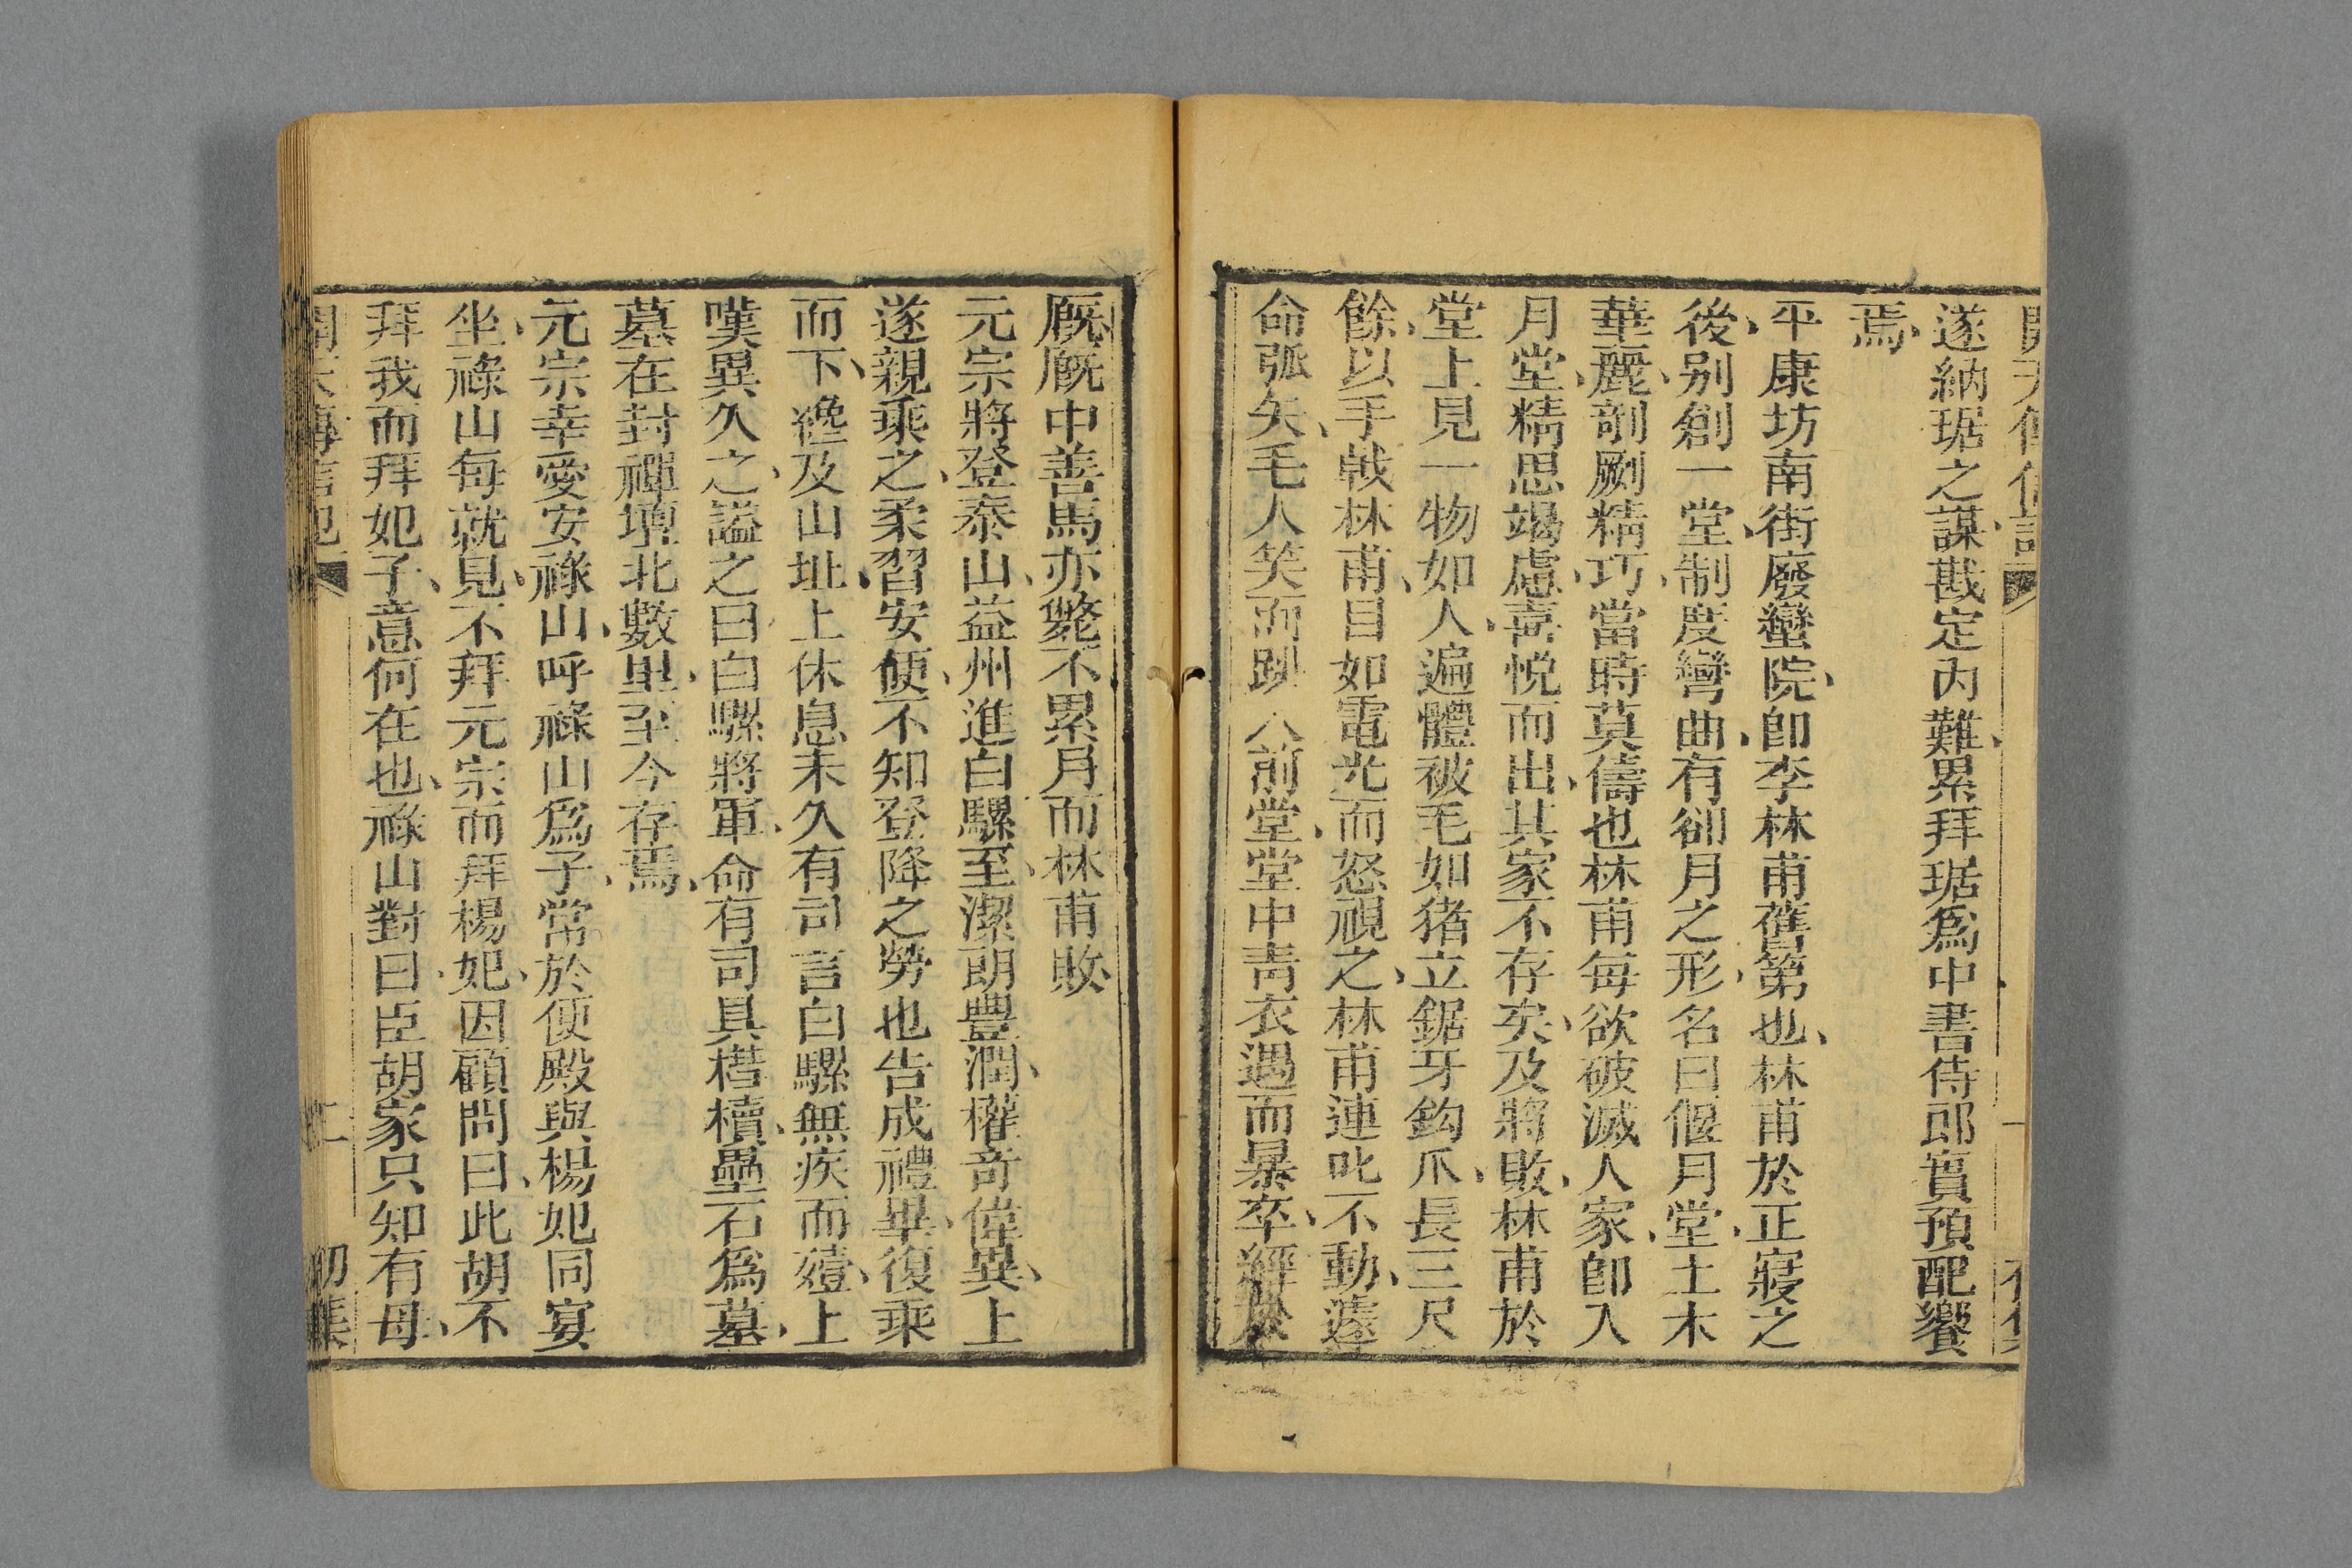 遂納琚之謀、戡定內難、累拜琚爲中書侍郎實預配饗
焉、
平康坊南街廢蠻院、卽李林甫舊第也、林甫於正寢之
後、別創一堂、制度彎曲、有郤月之形、名曰偃月堂、土木
華麗、剞劂精巧、當時莫儔也林甫每欲破滅人家、卽入
月堂、精思竭慮、喜悅而出、其家不存矣、及將敗、林甫於
堂上見一物如人、遍體被毛、毛如猪立、鋸牙鈎爪、長三尺
餘、以手戟林甫、目如電光而怒視之、林甫連叱不動、遽
命弧矢、毛人笑而跳 入前堂、堂中靑衣遇而暴卒、經於
廐、廐中善馬亦斃不累月而林甫敗、
元宗將登泰山、益州進白騾至、潔朗豐潤、權奇偉異、上
遂親乘之、柔習安便、不知登降之勞也告成禮畢、復乘
而下、纔及山址、上休息未久、有司言白騾無疾而殪、上
嘆異久之、謚之曰白騾將軍、命有司具槥櫝、壘石爲墓、
墓在封禪壇北數里、至今存焉、
元宗幸愛安祿山、呼祿山爲子、常於便殿與楊妃同宴
坐、祿山每就見、不拜元宗而拜楊妃、因顧問曰、此胡不
拜我而拜妃子、意何在也、祿山對曰、臣胡家只知有母、
二
初集